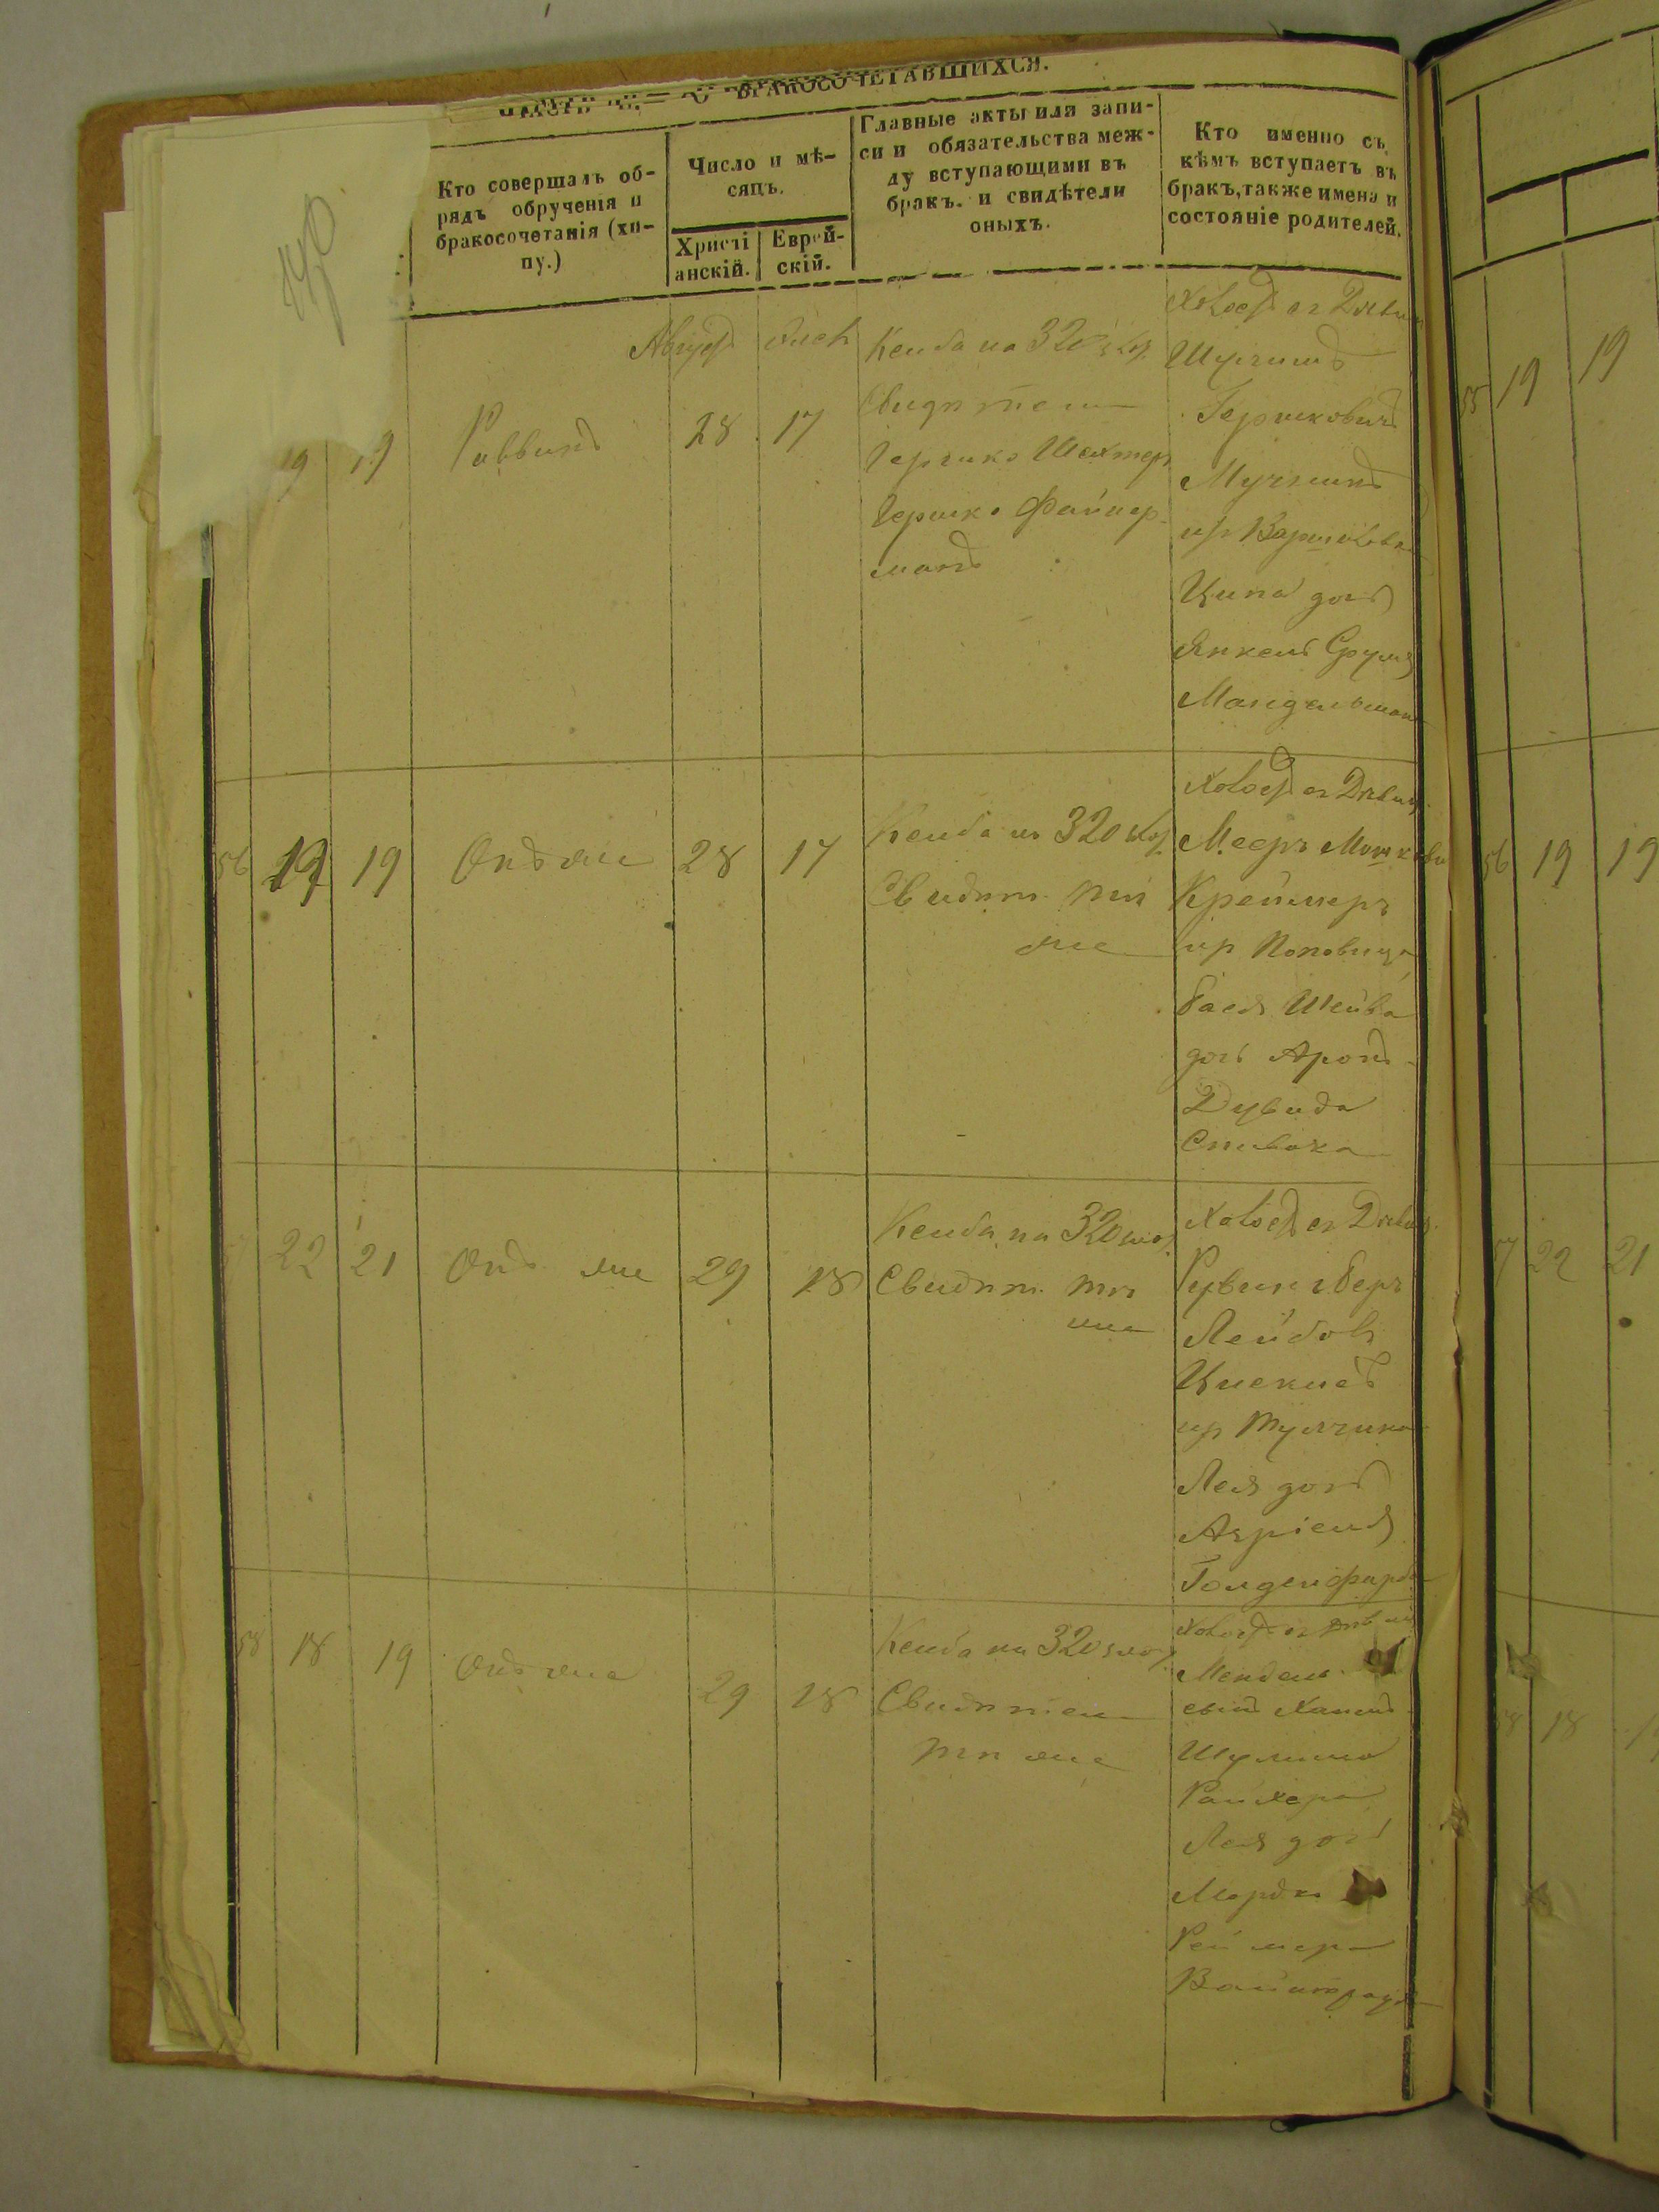 ЧАСТЬ II.— О БРАКОСОЧЕТАВШИХСЯ.
Кто совершалъ об-
рядъ обрученія и
бракосочетанія (хи-
пу.)
Число и мѣ-
сяцъ.
Христі
анскій.
Еврей-
скій.
Главные акты или запи-
си и обязательства меж-
ду вступающими въ
бракъ. и свидѣтели
оныхъ.
Кто именно съ
кѣмъ вступаетъ въ
бракъ, также имена и
состояніе родителей.
19 19 Раввинъ
Августъ
28 17
Кенба на 320 злот
Свидѣтели
Гершко Шехтеръ
Гершко Файнер-
манъ
Холост съ Дѣвиц
Шулимъ
Гершковичъ
Мучникъ
Ципа дочь
Янкель Срулъ
Мандельман
56 19 19 Онъ же 28 17
Кенба на 320 злот
Свидѣт. тѣ
же
Холост съ Дѣвиц
Мееръ Мошкови
Креймеръ
из Поповица
Бася Шейва
дочь Аронъ
Дувида
Спивака
57 22 21 Онъ же 29 18
Кенба на 320 злот
Свидѣт. тѣ
же
Холост съ Дѣвиц
Рувинъ Беръ
Лейбовъ
из Тульчина
Лея дочь
Азріеля
Голденфарба
58 18 19 Онъ же 29 18
Кенба на 320 злот
Свидѣтели
тѣ же
Холост съ Дѣвиц
Мендель
сынъ Хаимъ
Шулима
Райхера
Лея дочь
Мордко
Вайнтрауб
55 19 19
56 19 19
57 22 21
58 18